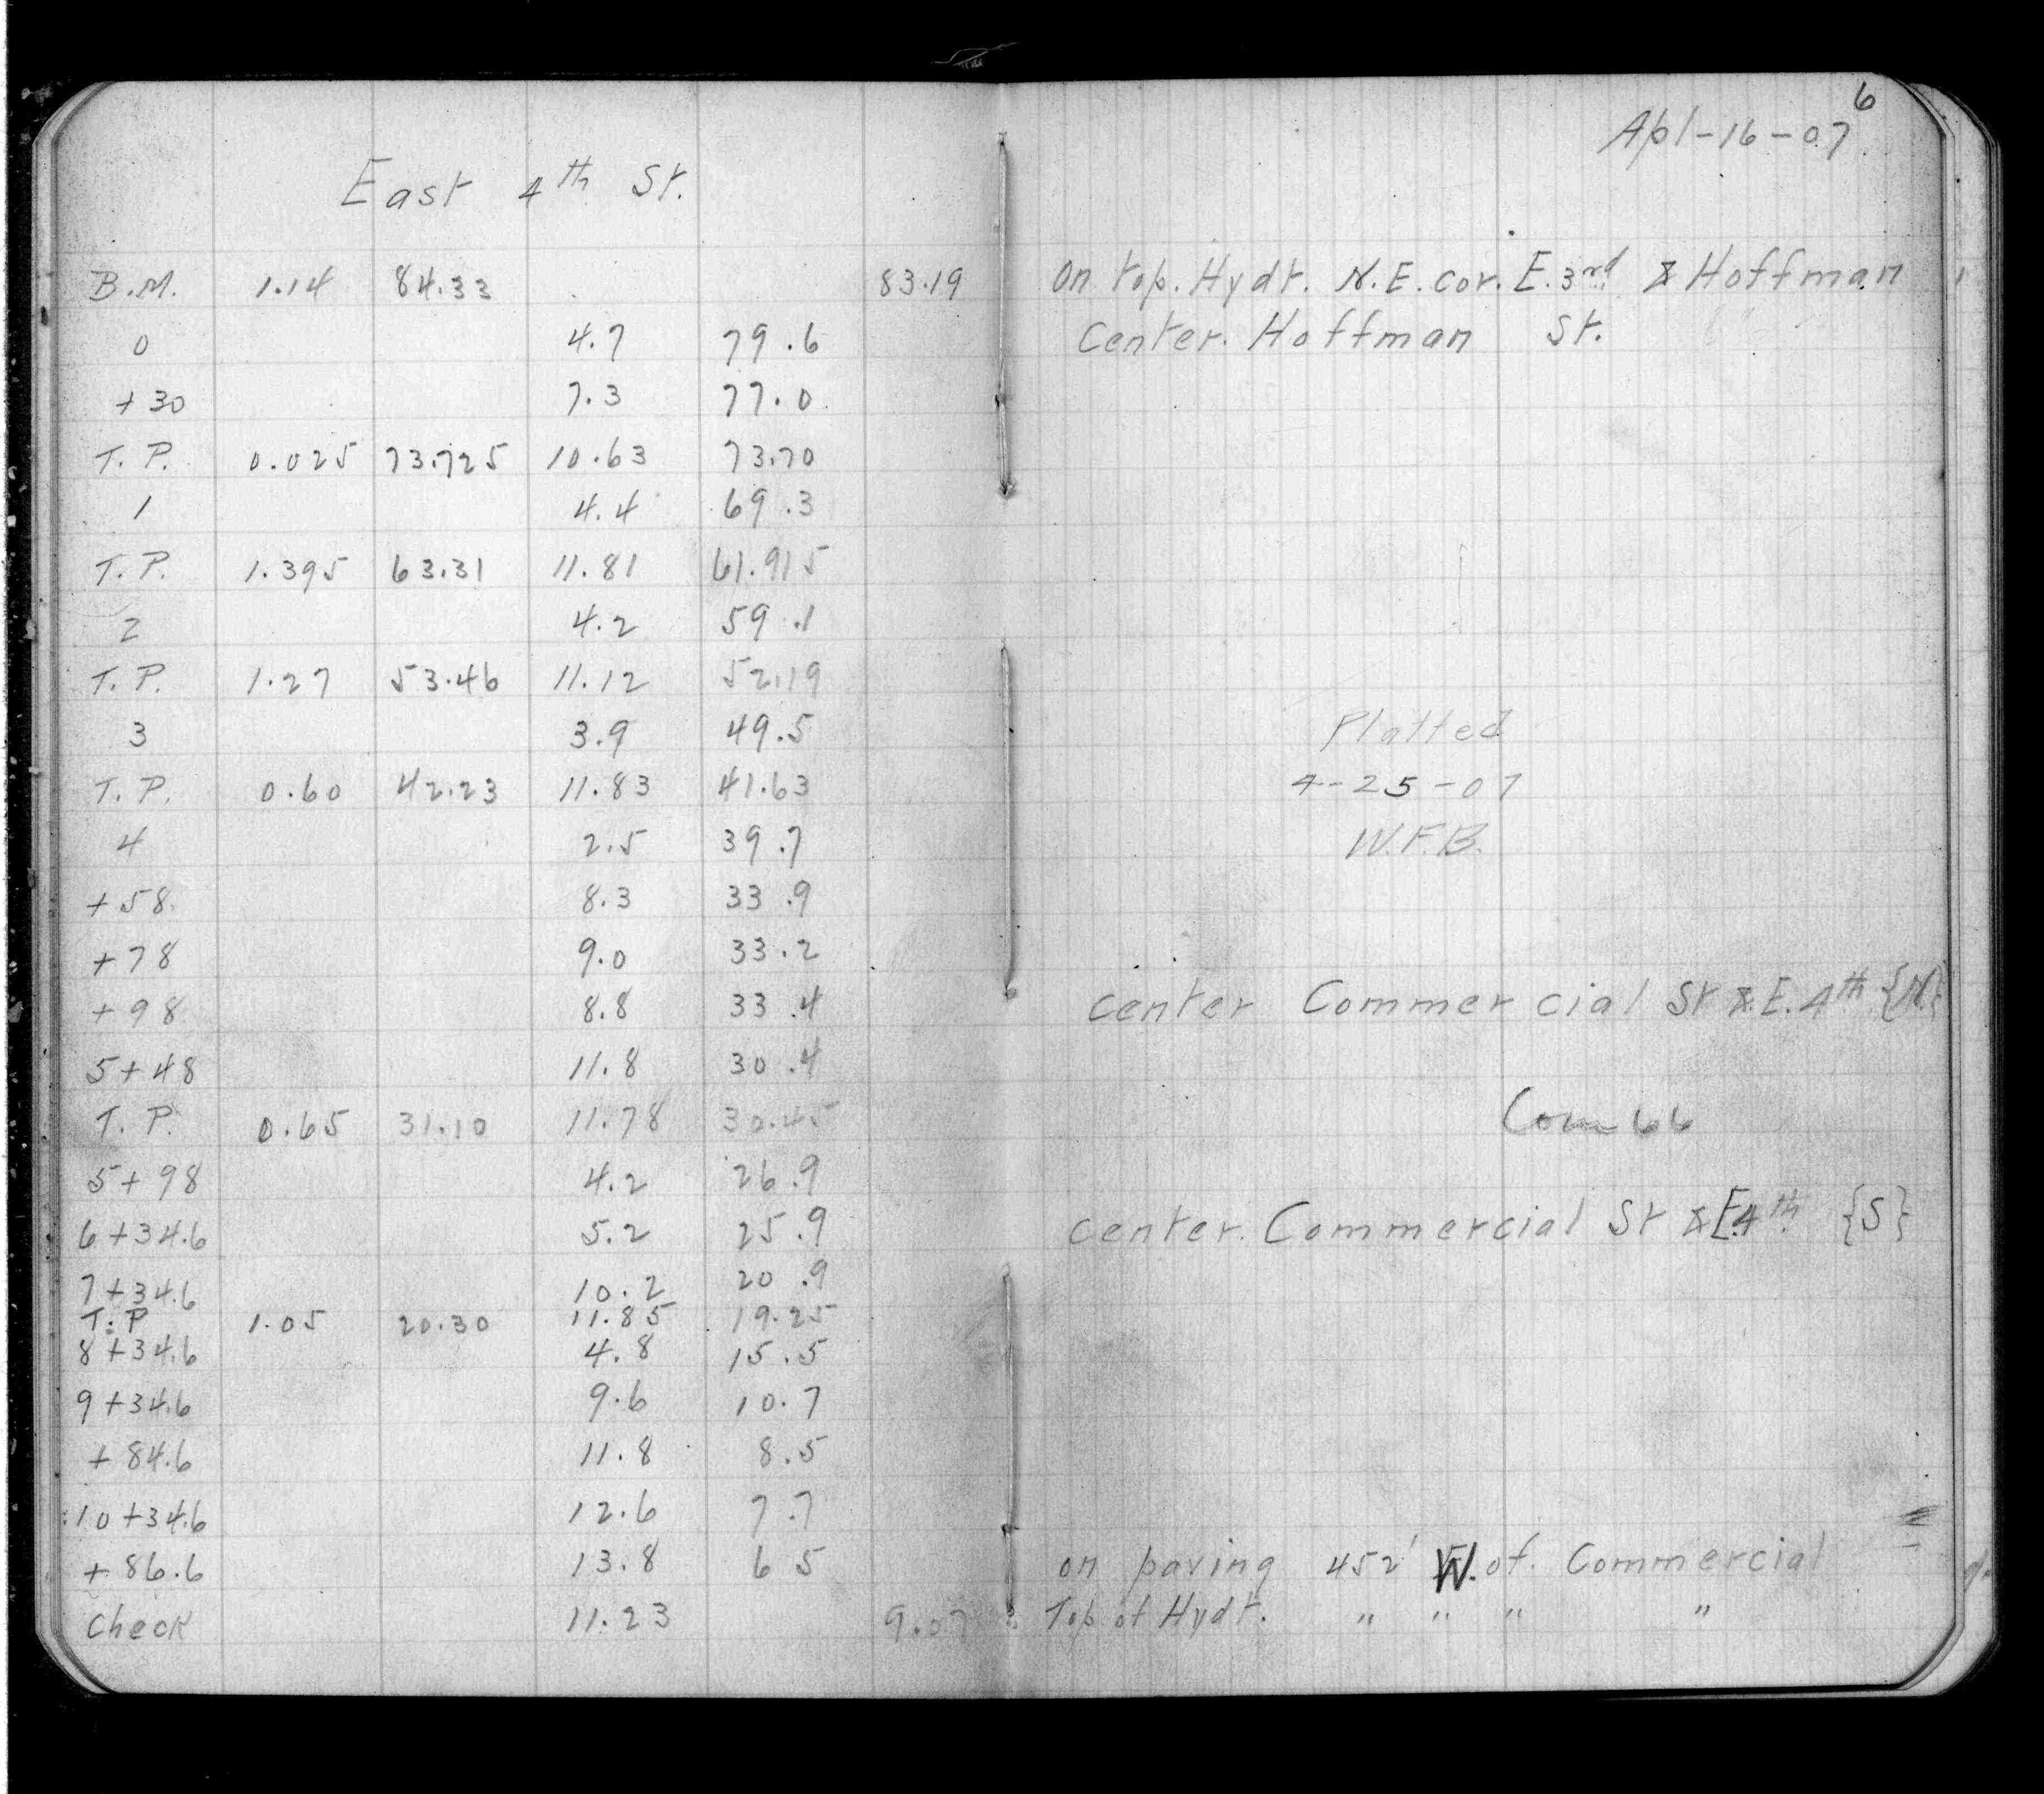 6
Apl-16-07
East 4th St.
B.M. 1.14 84.33 83.19 On top. Hydt. N.E. cor. E. 3rd & Hoffman
0 4.7 79.6 Center. Hoffman St.
+30 7.3 77.0
T.P. 0.025 73.725 10.63 73.70
1 4.4 69.3
T.P. 1.395 63.31 11.81 61.915
2 4.2 59.1
T.P. 1.27 53.46 11.12 52.19
3 3.9 49.5 Platted
T.P. 0.60 42.23 11.83 41.63 4-25-07
4 2.5 39.7 W.F.B.
+58 8.3 33.9
+78 9.0 33.2
+98 8.8 33.4 center Commercial St & E. 4th {N}
5+48 11.8 30.4
T.P. 0.65 31.10 11.78 30.45 Com 66
5+98 4.2 26.9
6+34.6 5.2 25.9 center. Commercial St & E. 4th {S}
7+34.6 10.2 20.9
T.P 1.05 20.30 11.85 19.25
8+34.6 4.8 15.5
9+34.6 9.6 10.7
+84.6 11.8 8.5
10+34.6 12.6 7.7
+86.6 13.8 6 5 on paving 452' W. of. Commercial
Check 11.23 9.07 Top of Hydt. " " " "